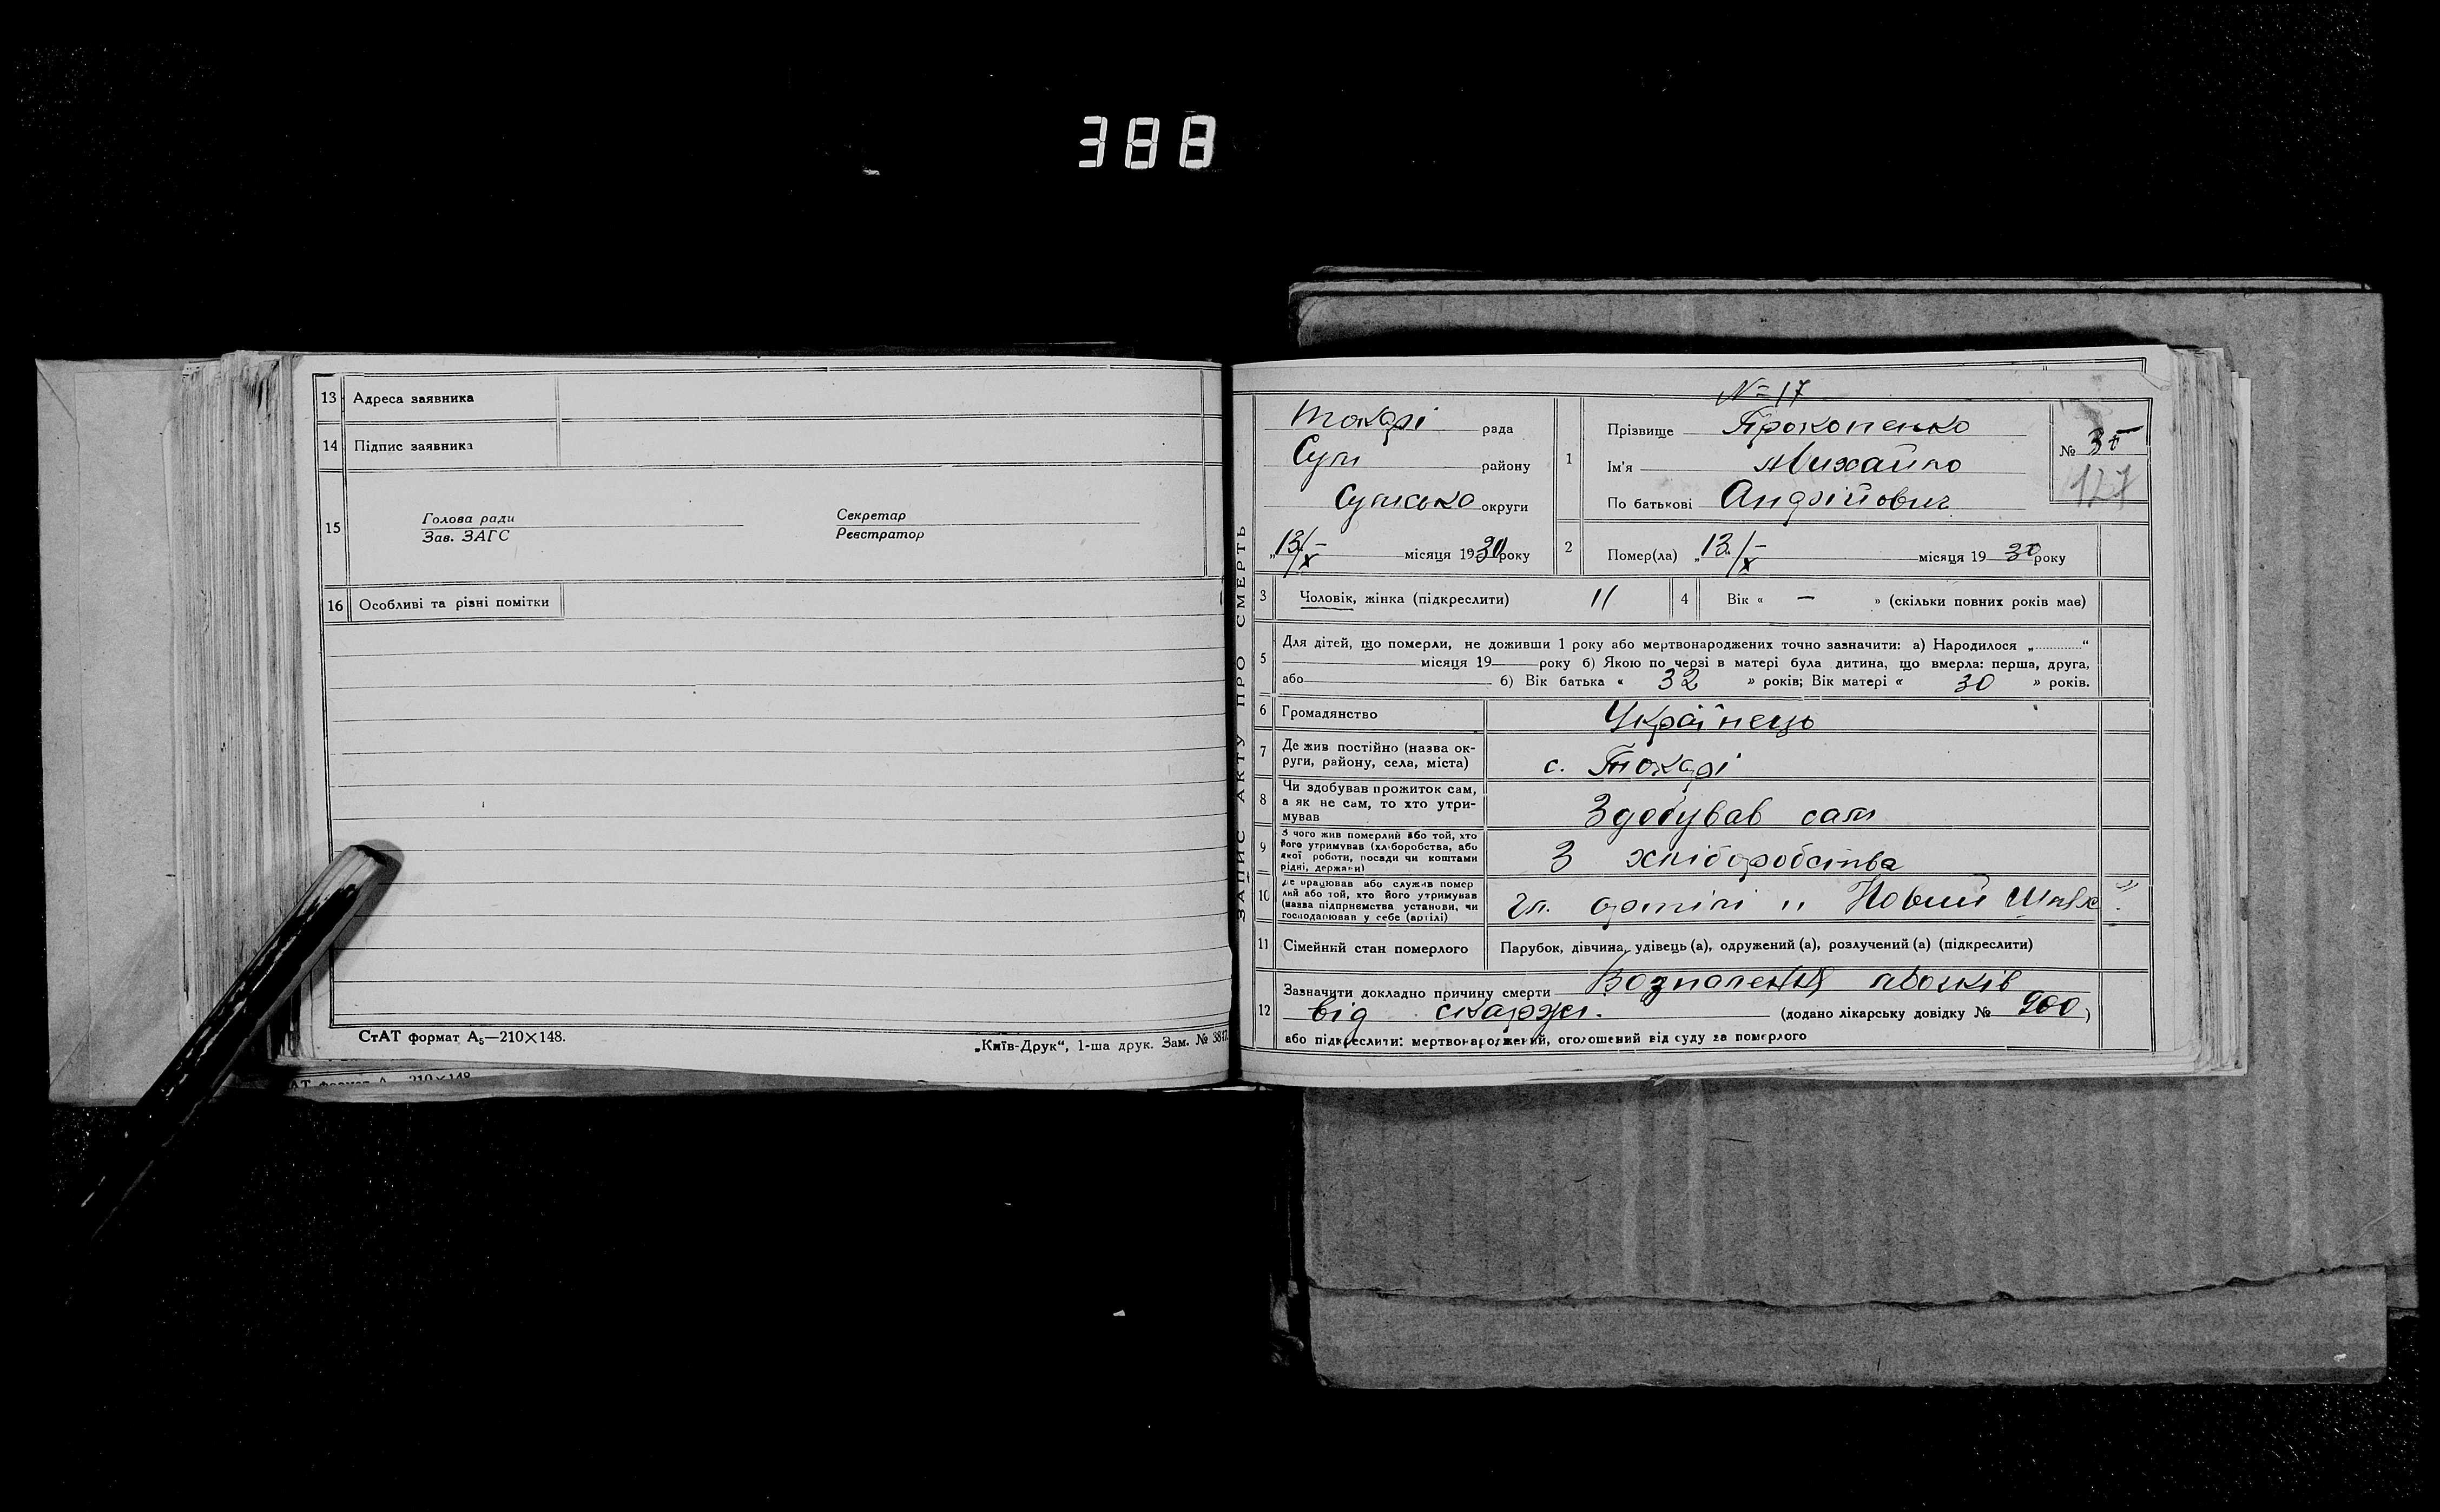 388
13 Адреса заявника
14 Підпис заявника
15 Голова ради Секретар
Зав. ЗАГС Реєстратор
16 Особливі та різні помітки
СтАТ формат А₅—210×148.
„Київ-Друк“, 1-ша друк. Зам. № 3817.
ЗАПИС АКТУ ПРО СМЕРТЬ
№ 17
Токарі рада
Сум району
Сумсько округи
„13/X місяця 1930 року
1 Прізвище Прокопенко
Ім'я Михайло
По батькові Андрійович
№
127
2 Помер(ла) „13/X місяця 19 30 року
3 Чоловік, жінка (підкреслити) 11
4 Вік « — » (скільки повних років має)
5 Для дітей, що померли, не доживши 1 року або мертвонароджених точно зазначити: а) Народилося „ “
місяця 19 року б) Якою по черзі в матері була дитина, що вмерла: перша, друга,
або б) Вік батька « 32 » років; Вік матері « 30 » років.
6 Громадянство Українець
7 Де жив постійно (назва ок-
руги, району, села, міста) с. Токарі
8 Чи здобував прожиток сам,
а як не сам, то хто утри-
мував Здобував сам
9 З чого жив померлий або той, хто
його утримував (хліборобства, або
якої роботи, посади чи коштами
рідні, держави) З хліборобства
10 Де працював або служив помер
лий або той, хто його утримував
(назва підприємства установи, чи
господарював у себе (артілі) чл. артілі „ Новий Шлях "
11 Сімейний стан померлого Парубок, дівчина, удівець (а), одружений (а), розлучений (а) (підкреслити)
12 Зазначити докладно причину смерти
від (додано лікарську довідку № 900)
або підкреслити: мертвонароджений, оголошений від суду за померлого